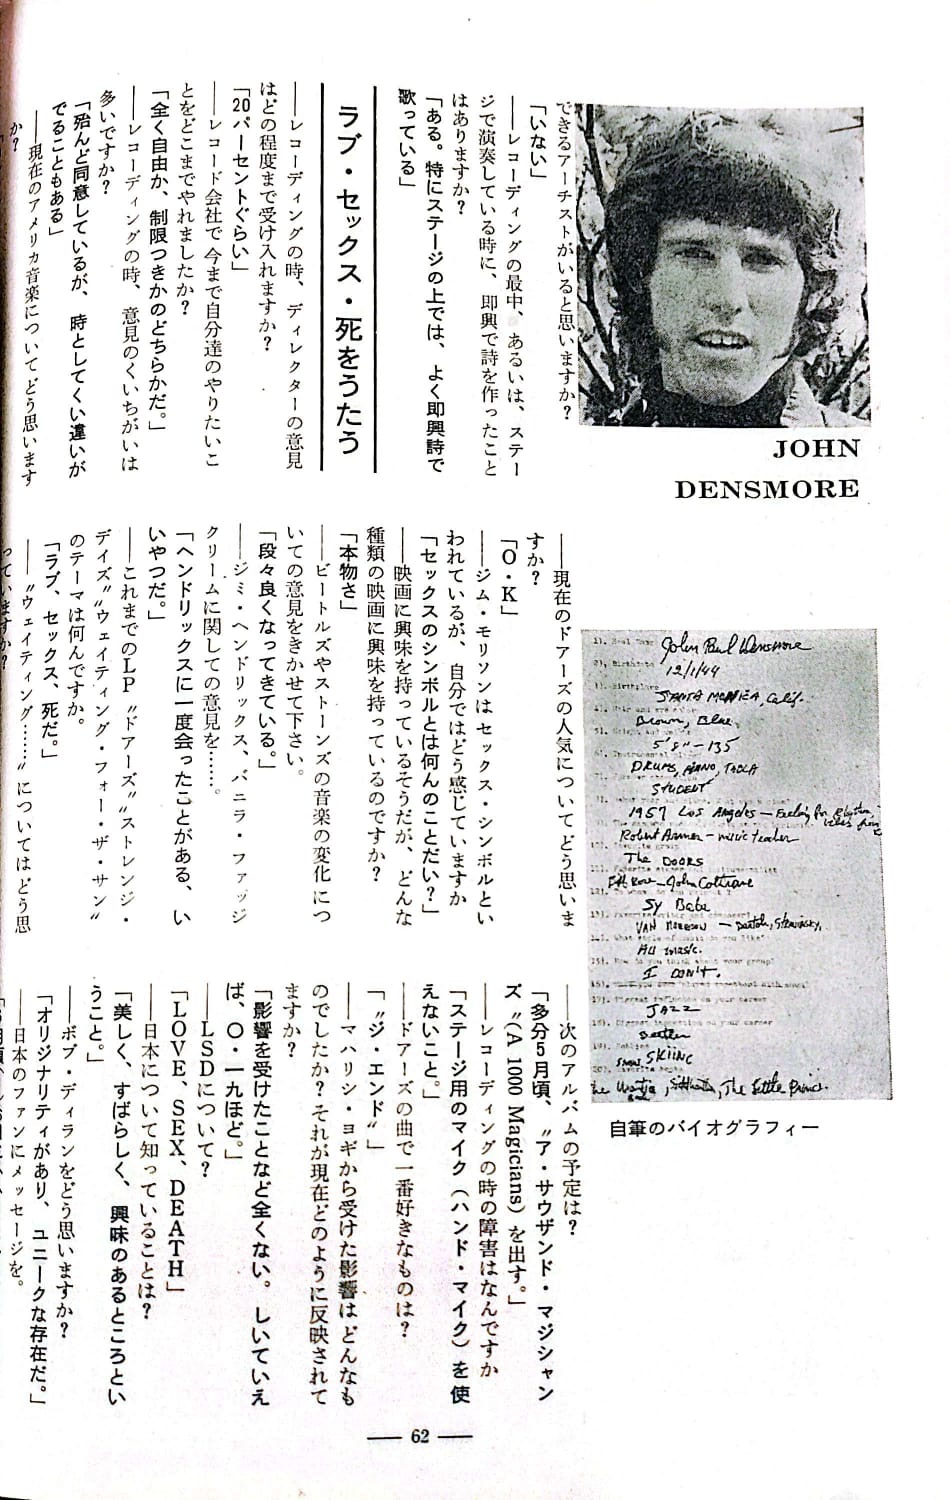 JOHN
DENSMORE
できるアーチストがいると思いますか?
「いない」
――レコーディングの最中、あるいは、ステー
ジで演奏している時に、即興で詩を作ったこと
はありますか?
「ある。特にステージの上では、よく即興詩で
歌っている」
ラブ・セックス・死をうたう
――レコーディングの時、ディレクターの意見
はどの程度まで受け入れますか?
「20パーセントぐらい」
――レコード会社で今まで自分達のやりたいこ
とをどこまでやれましたか?
「全く自由か、制限つきかのどちらかだ。」
――レコーディングの時、意見のくいちがいは
多いですか?
「殆んど同意しているが、時としてくい違いが
でることもある」
――現在のアメリカ音楽についてどう思います
か?
――現在のドアーズの人気についてどう思いま
すか?
「O・K」
――ジム・モリソンはセックス・シンボルとい
われているが、自分ではどう感じていますか
「セックスのシンボルとは何んのことだい?」
――映画に興味を持っているそうだが、どんな
種類の映画に興味を持っているのですか?
「本物さ」
――ビートルズやストーンズの音楽の変化につ
いての意見をきかせて下さい。
「段々良くなってきている。」
――ジミ・ヘンドリックス、バニラ・ファッジ
クリームに関しての意見を……。
「ヘンドリックスに一度会ったことがある、い
いやつだ。」
――これまでのLP〝ドアーズ〟〝ストレンジ・
デイズ〟〝ウェイティング・フォー・ザ・サン〟
のテーマは何んですか。
「ラブ、セックス、死だ。」
――〝ウェイティング……〟についてはどう思
っていますか?
――次のアルバムの予定は?
「多分5月頃、〝ア・サウザンド・マジシャン
ズ〟(A 1000 Magicians)を出す。」
――レコーディングの時の障害はなんですか
「ステージ用のマイク(ハンド・マイク)を使
えないこと。」
――ドアーズの曲で一番好きなものは?
「〝ジ・エンド〟」
――マハリシ・ヨギから受けた影響はどんなも
のでしたか?それが現在どのように反映されて
ますか?
「影響を受けたことなど全くない。しいていえ
ば、〇・一九ほど。」
――LSDについて?
「LOVE、SEX、DEATH」
――日本について知っていることは?
「美しく、すばらしく、興味のあるところとい
うこと。」
――ボブ・ディランをどう思いますか?
「オリジナリティがあり、ユニークな存在だ。」
――日本のファンにメッセージを。
John Paul Densmore
12/1/44
SANTA MONICA, Calif.
Brown, Blue
5'8"-135
DRUMS, PIANO, TABLA
STUDENT
1957 Los Angeles - Feeling for Rhythm
Robert Armer - music teacher
The DOORS
John Coltrane
Sy Babe
VAN MORRISON - Bartok, Stravinsky,
All music.
I DON'T.
JAZZ
Beatles
SKIING
Siddhartha, The Little Prince.
自筆のバイオグラフィー
― 62 ―